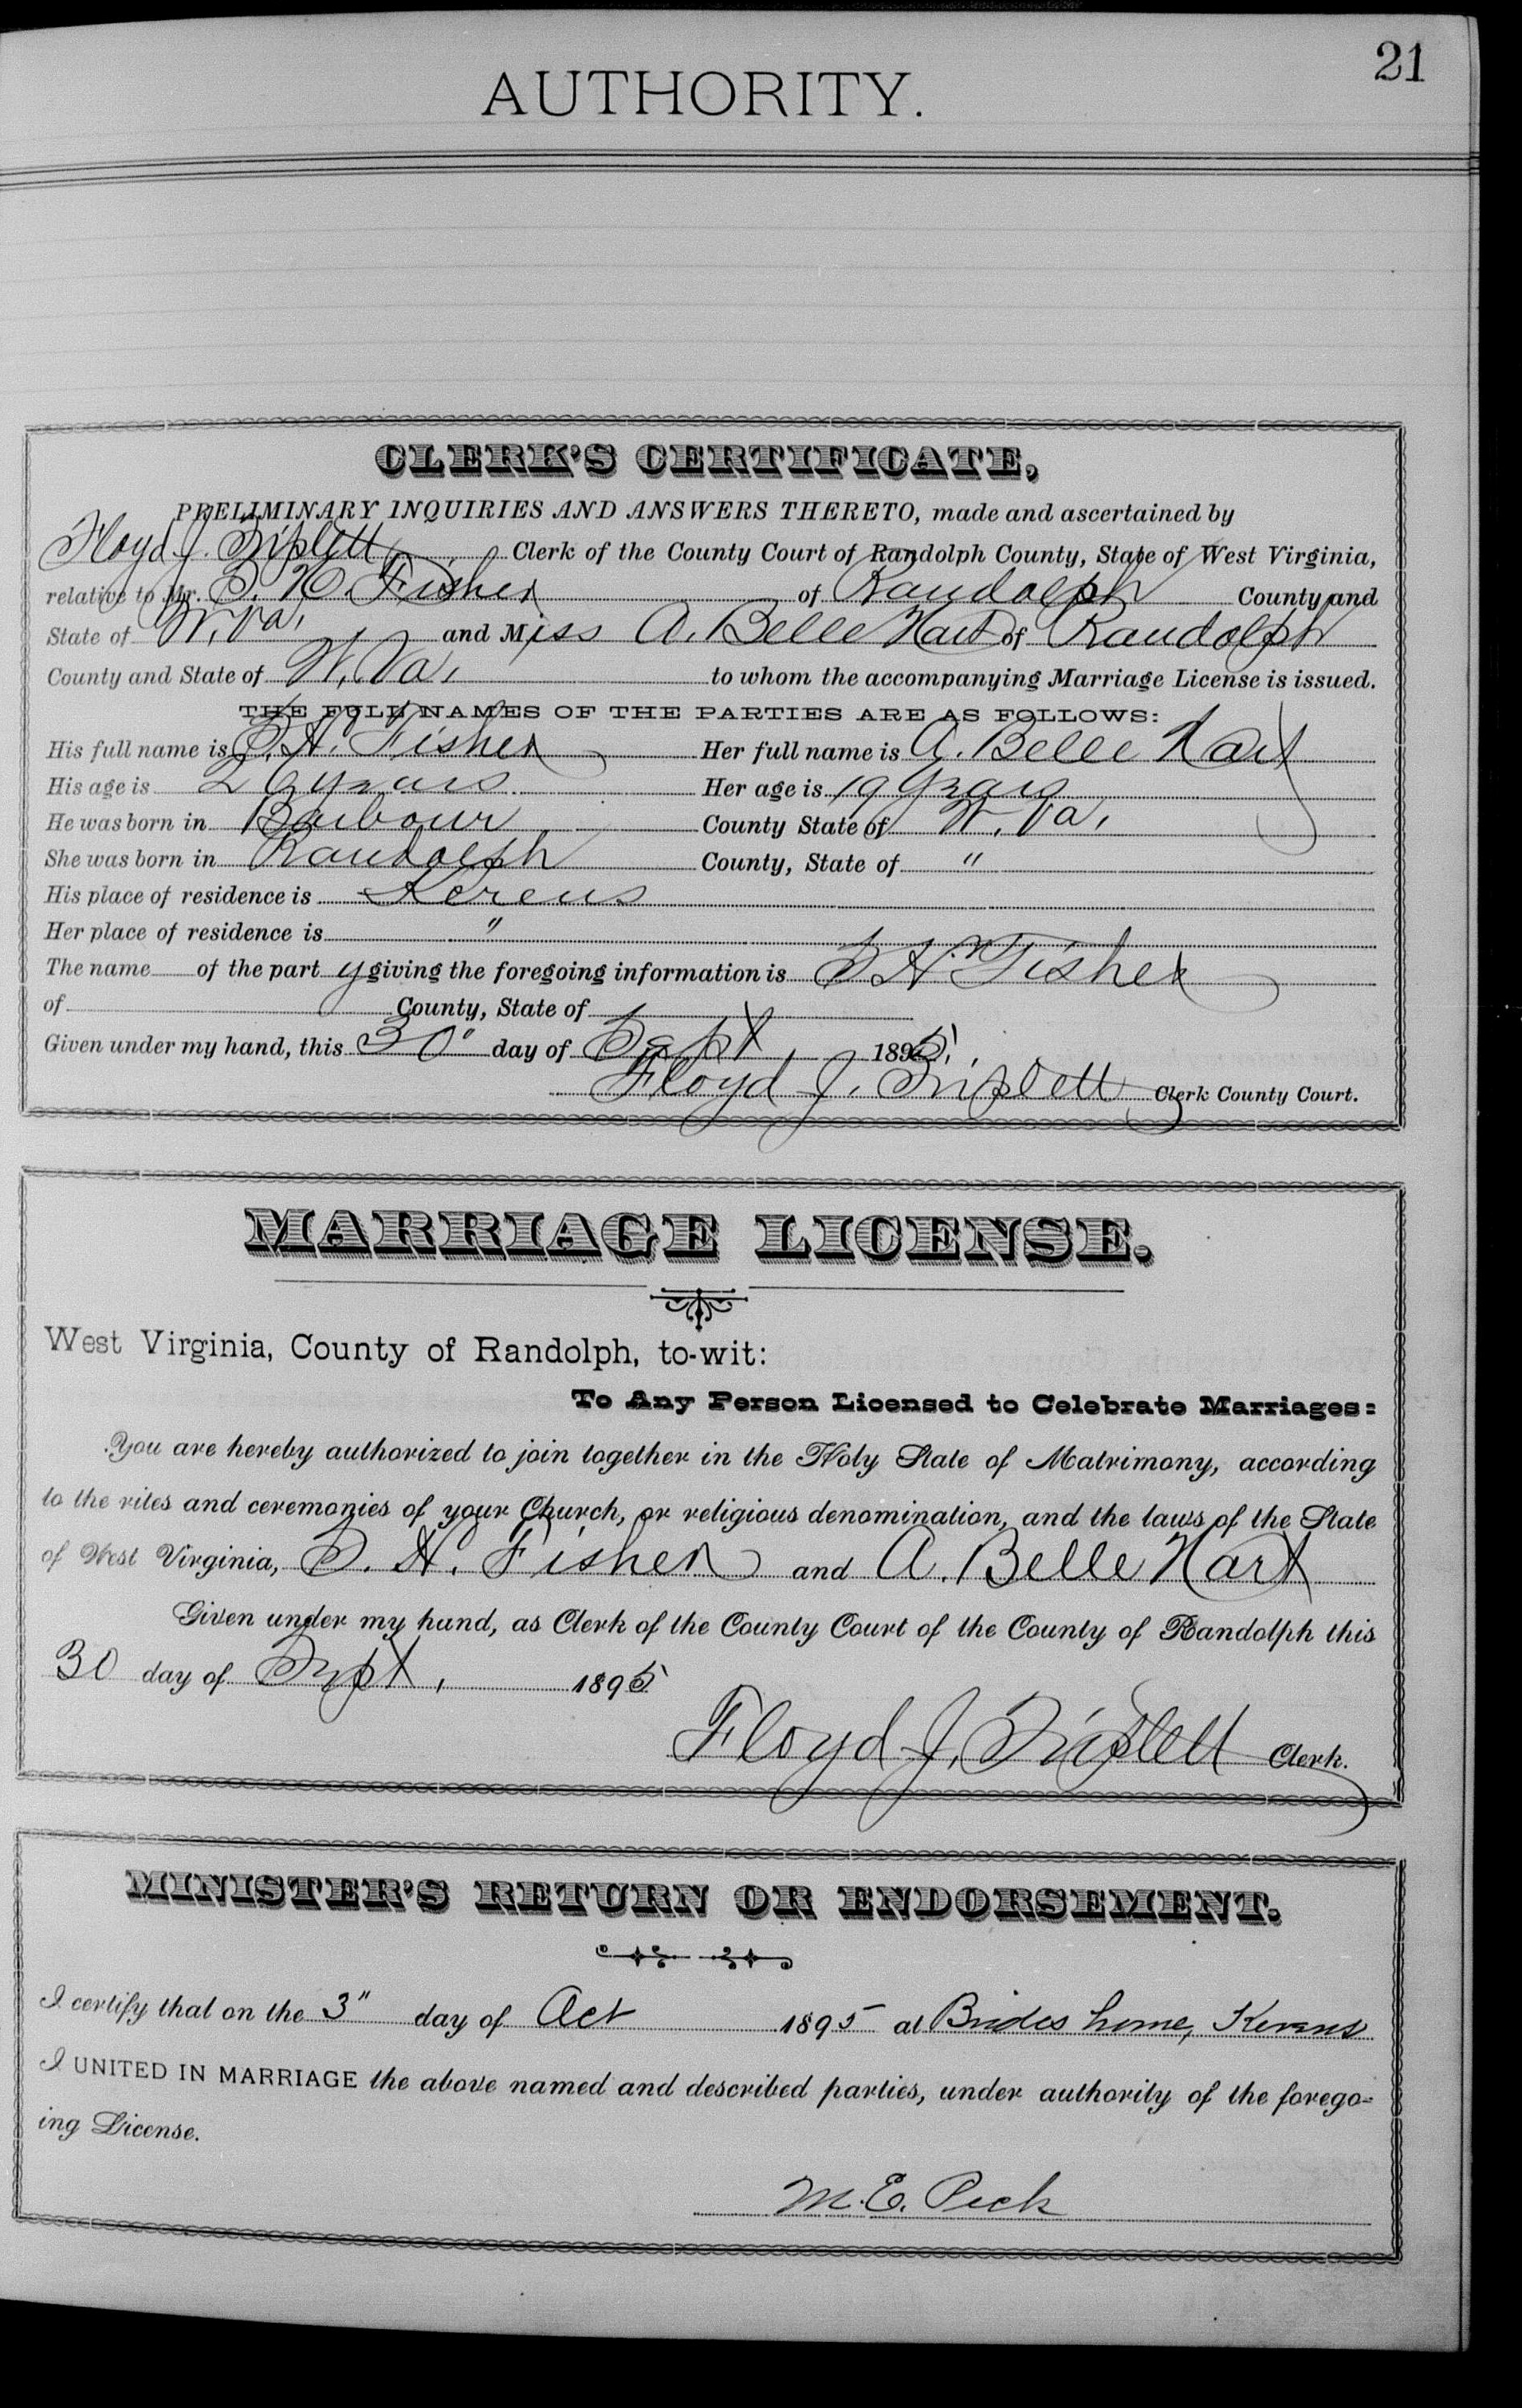 21
AUTHORITY.
CLERK'S CERTIFICATE,
PRELIMINARY INQUIRIES AND ANSWERS THERETO, made and ascertained by
Floyd J. Triplett Clerk of the County Court of Randolph County, State of West Virginia,
relative to Mr. S. H. Fisher of Randolph County and
State of W. Va, and Miss A. Belle Hart of Randolph
County and State of W. Va, to whom the accompanying Marriage License is issued.
THE FULL NAMES OF THE PARTIES ARE AS FOLLOWS:
His full name is S. H. Fisher Her full name is A. Belle Hart
His age is 26 years Her age is 19 years
He was born in Barbour County State of W. Va,
She was born in Randolph County, State of "
His place of residence is Kerens
Her place of residence is "
The name of the party giving the foregoing information is S H. Fisher
of County, State of
Given under my hand, this 30" day of Sept, 1895,
Floyd J. Triplett Clerk County Court.
MARRIAGE LICENSE.
West Virginia, County of Randolph, to-wit:
To Any Person Licensed to Celebrate Marriages:
You are hereby authorized to join together in the Holy State of Matrimony, according
to the rites and ceremonies of your Church, or religious denomination, and the laws of the State
of West Virginia, S. H. Fisher and A. Belle Hart
Given under my hand, as Clerk of the County Court of the County of Randolph this
30 day of Sept, 1895
Floyd J. Triplett Clerk.
MINISTER'S RETURN OR ENDORSEMENT.
I certify that on the 3" day of Oct 1895 at Brides home, Kerens
I UNITED IN MARRIAGE the above named and described parties, under authority of the forego-
ing License.
M. E. Peck